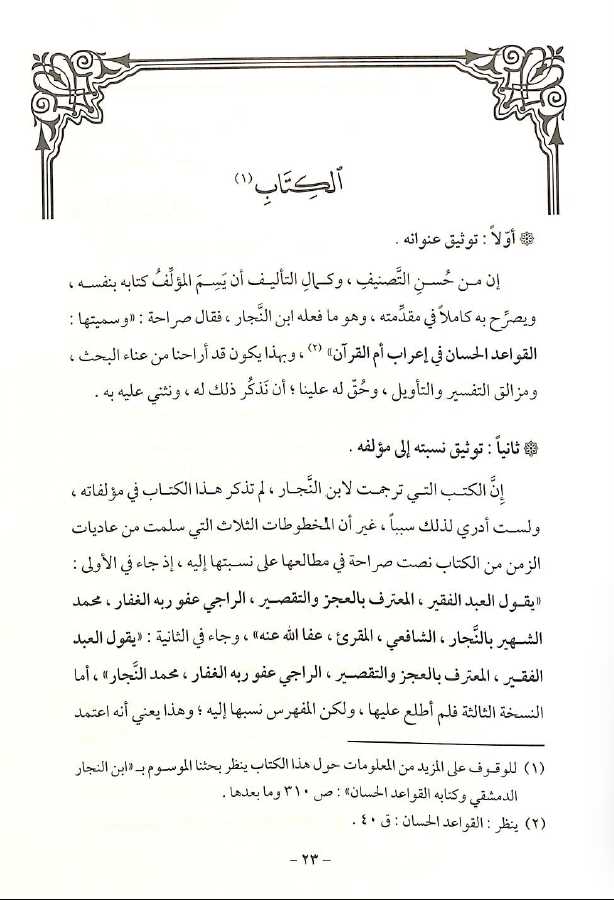 الكِتَابِ (١)
❁ أوّلاً : توثيق عنوانه .
إن من حُسنِ التَّصنيفِ ، وكمالِ التأليف أن يَسِمَ المؤلِّفُ كتابه بنفسه ،
ويصرِّح به كاملاً في مقدِّمته ، وهو ما فعله ابن النَّجار ، فقال صراحة : «وسميتها :
القواعد الحسان في إعراب أم القرآن» (٢) ، وبهذا يكون قد أراحنا من عناء البحث ،
ومزالق التفسير والتأويل ، وحُقّ له علينا ؛ أن نَذكُر ذلك له ، ونثني عليه به .
❁ ثانياً : توثيق نسبته إلى مؤلفه .
إنَّ الكتـب التـي ترجمت لابن النَّجـار ، لم تذكر هـذا الكتاب في مؤلفاته ،
ولست أدري لذلك سبباً ، غير أن المخطوطات الثلاث التي سلمت من عاديات
الزمن من الكتاب نصت صراحة في مطالعها على نسبتها إليه ، إذ جاء في الأولى :
«يقـول العبد الفقير ، المعترف بالعجز والتقصير ، الراجي عفو ربه الغفار ، محمد
الشهير بالنَّجار ، الشافعي ، المقرئ ، عفا الله عنه» ، وجاء في الثانية : «يقول العبد
الفقير ، المعترف بالعجز والتقصير ، الراجي عفو ربه الغفار ، محمد النَّجار» ، أما
النسخة الثالثة فلم أطلع عليها ، ولكن المفهرس نسبها إليه ؛ وهذا يعني أنه اعتمد
(١) للوقوف على المزيد من المعلومات حول هذا الكتاب ينظر بحثنا الموسوم بـ «ابن النجار
الدمشقي وكتابه القواعد الحسان» : ص ٣١٠ وما بعدها .
(٢) ينظر : القواعد الحسان : ق ٤٠ .
- ٢٣ -